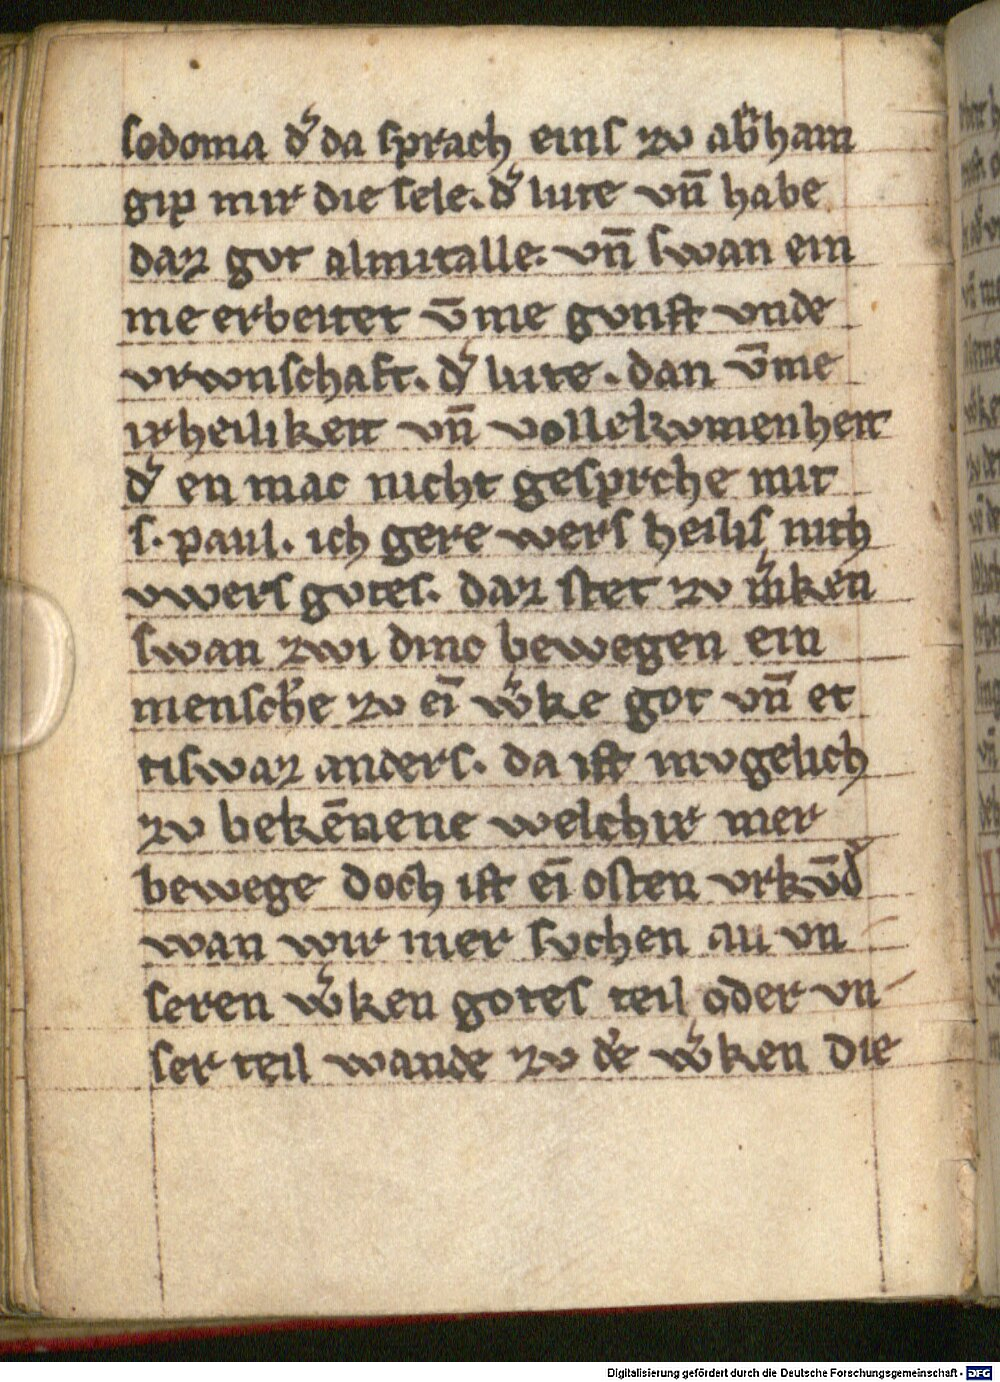 sodoma d᷑ da sprach eins zv ab᷑ham
gip mir die sele. d᷑ lute vn̄ habe
daz gvt almitalle. vn̄ swan ein
me erbeitet v̄me gvnst vnde
vrwnschaft. d᷑ lute. dan v̄me
ir heilikeit vn̄ vollekvmenheit
d᷑ en mac nicht gesprche mit
s. paul. ich gere wers heilis nich
vwers gvtes. daz stet zv m᷑ken
swan zwi dinc bewegen ein
mensch᷑e zv eī w᷑ke got vn̄ et
tiswaz anders. da ist mvgelich
zv bekēnene welchir mer
bewege doch ist eī osten vrkv̄d᷑
wan wir mer svchen an vn
seren w᷑ken gotes teil oder vn
ser teil wande zv d᷑e w᷑ken die
Digitalisierung gefördert durch die Deutsche Forschungsgemeinschaft - DFG